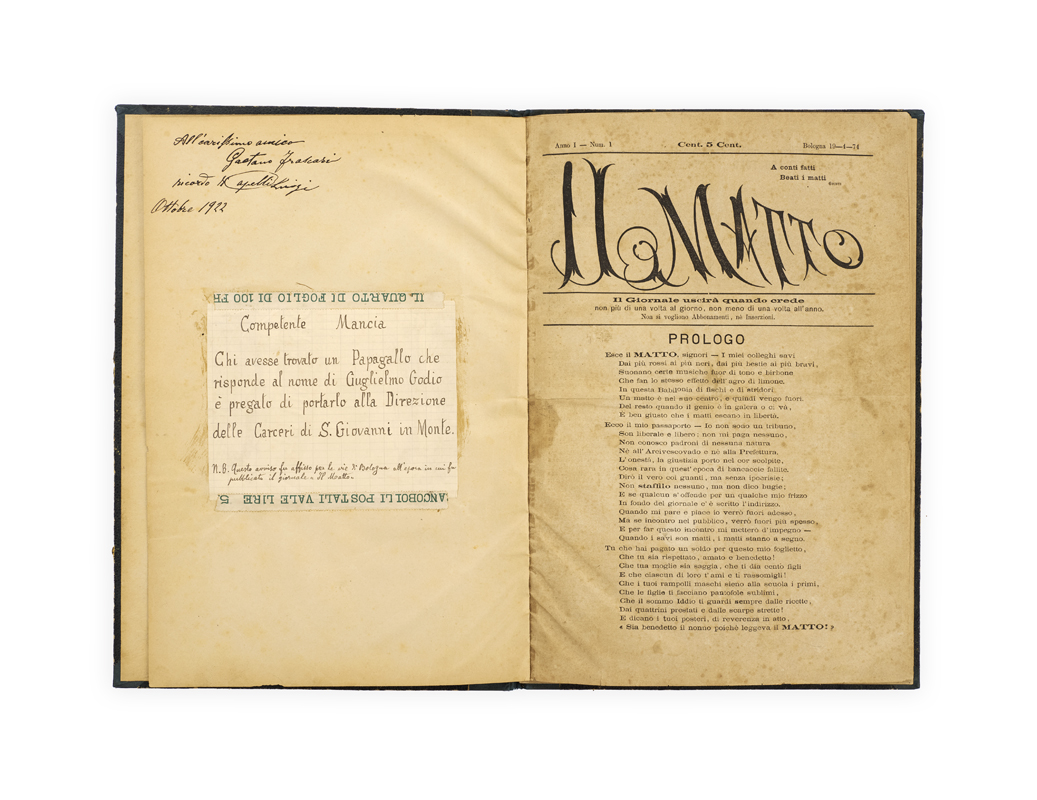 All'carissimo amico
Gaetano Frascari
ricordo di Capelli Luigi
Ottobre 1922
IL QUARTO DI FOGLIO DI 100 FR
Competente Mancia
Chi avesse trovato un Papagallo che
risponde al nome di Guglielmo Godio
è pregato di portarlo alla Direzione
delle Carceri di S. Giovanni in Monte.
N.B. Questo avviso fu affisso per le vie di Bologna all'epoca in cui fu
pubblicato il giornale "Il Matto".
ANCOBOLLI POSTALI VALE LIRE 5.
Anno 1 — Num. 1
Cent. 5 Cent.
Bologna 19—4—74
A conti fatti
Beati i matti
IL MATTO
Il Giornale uscirà quando crede
non più di una volta al giorno, non meno di una volta all'anno.
Non si vogliono Abbonamenti, nè Inserzioni.
PROLOGO
Esce il MATTO, signori — I miei colleghi savi
Dai più rossi ai più neri, dai più bestie ai più bravi,
Suonano certe musiche fuor di tono e birbone
Che fan lo stesso effetto dell'agro di limone.
In questa Babilonia di fischi e di stridori,
Un matto è nel suo centro, e quindi vengo fuori.
Del resto quando il genio o in galera o ci và,
È ben giusto che i matti escano in libertà.
Ecco il mio passaporto — Io non sono un tribuno,
Son liberale e libero; non mi paga nessuno,
Non conosco padroni di nessuna natura
Nè all'Arcivescovado e nè alla Prefettura,
L'onestà, la giustizia porto nel cor scolpite,
Cosa rara in quest'epoca di bancaccie fallite.
Dirò il vero coi guanti, ma senza ipocrisie;
Non staffilo nessuno, ma non dico bugie;
E se qualcun s'offende per un qualche mio frizzo
In fondo del giornale c'è scritto l'indirizzo.
Quando mi pare e piace io verrò fuori adesso,
Ma se incontro nel pubblico, verrò fuori più spesso,
E per far questo incontro mi metterò d'impegno —
Quando i savi son matti, i matti stanno a segno.
Tu che hai pagato un soldo per questo mio foglietto,
Che tu sia rispettato, amato e benedetto!
Che tua moglie sia saggia, che ti dia cento figli
E che ciascun di loro t'ami e ti rassomigli!
Che i tuoi rampolli maschi sieno alla scuola i primi,
Che le figlie ti facciano pantofole sublimi,
Che il sommo Iddio ti guardi sempre dalle ricette,
Dai quattrini prestati e dalle scarpe strette!
E dicano i tuoi posteri, di reverenza in atto,
« Sia benedetto il nonno poichè leggeva il MATTO! »